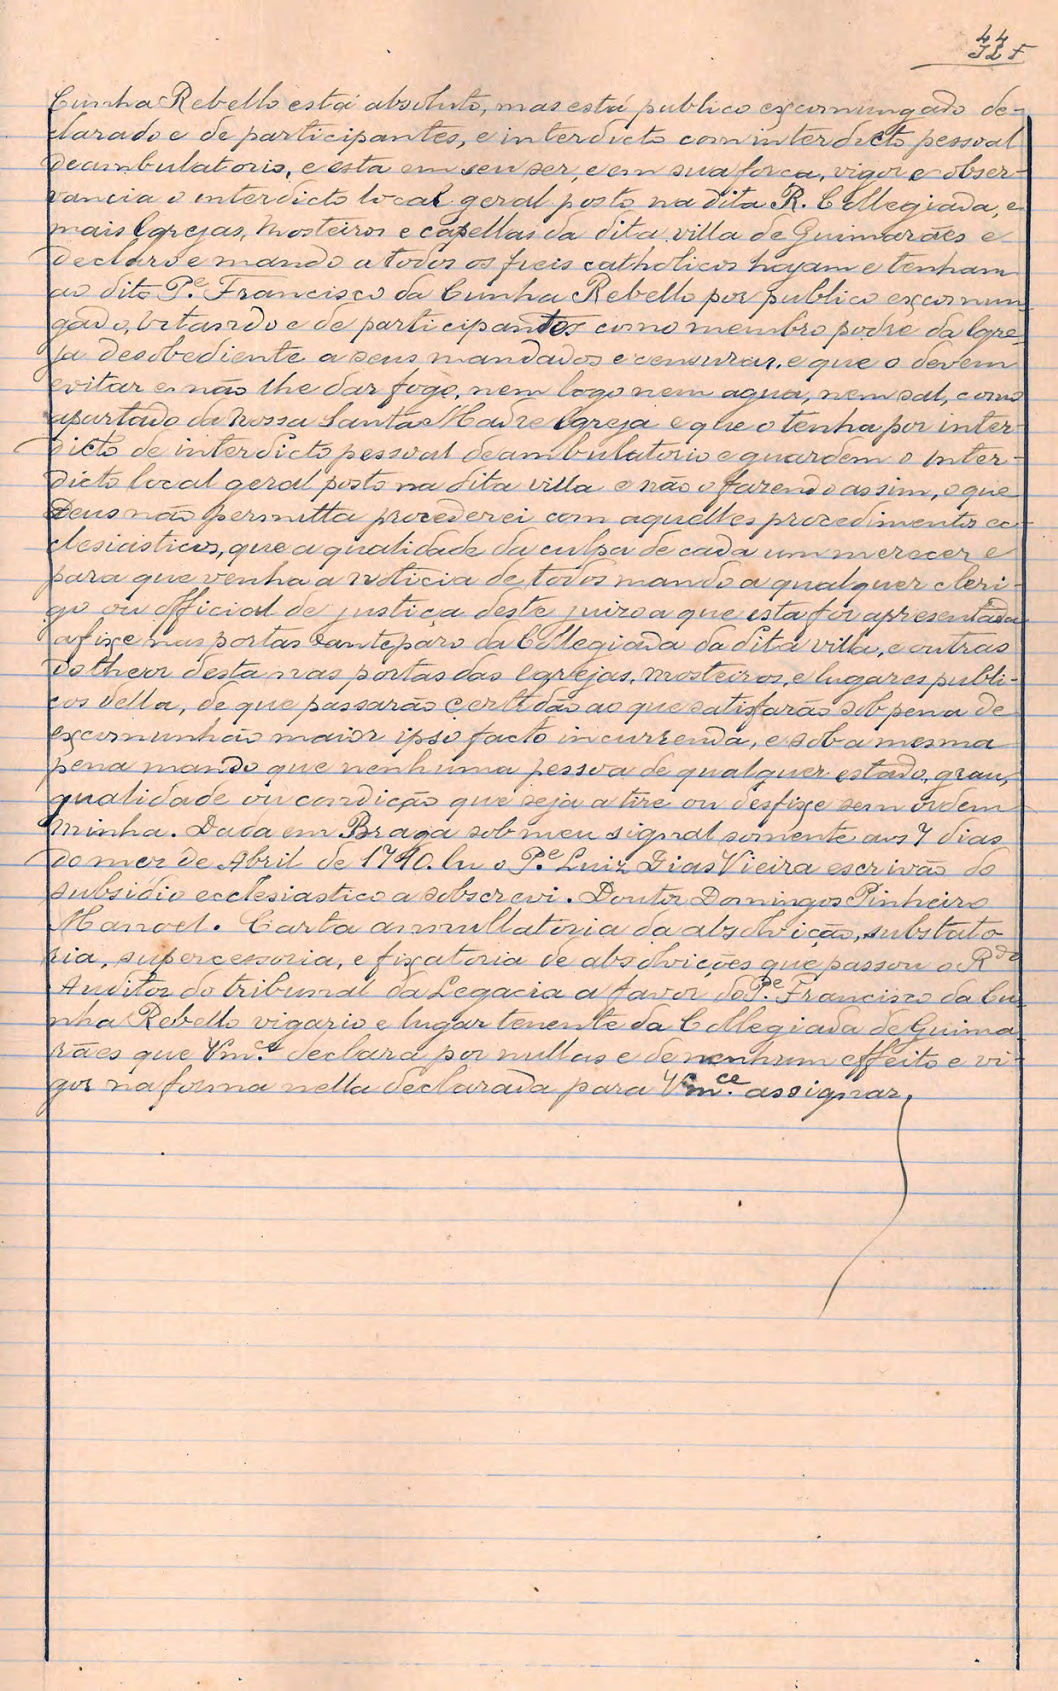 44
Cunha Rebello está absoluto, mas está publico excomungado de-
clarado e de participantes, e interdicto com interdicto pessoal
deambulatorio, e esta em seu ser, e em sua força, vigor e obser-
vancia o interdicto local geral posto na dita R. Collegiada, e
mais Egrejas, Mosteiros e capellas da dita villa de Guimarães e
declaro e mando a todos os fieis catholicos hajam e tenham
ao dito P.e Francisco da Cunha Rebello por publico excomun-
gado, vitando e de participantes como membro podre da Egre-
ja desobediente a seus mandados e censuras, e que o devem
evitar e não lhe dar fogo, nem logo nem agua, nem sal, como
apartado da Nossa Santa Madre Egreja e que o tenha por inter-
dicto de interdicto pessoal deambulatorio e guardem o inter-
dicto local geral posto na dita villa e não o fazendo assim, o que
Deus não permitta procederei com aquelles procedimentos ec-
clesiasticos, que a qualidade da culpa de cada um merecer e
para que venha a noticia de todos mando a qualquer cleri-
go ou official de justiça deste juizo a que esta for apresentada
afixe nas portas e anteparo da Collegiada da dita villa, e outras
do theor desta nas portas das Egrejas, Mosteiros, e lugares publi-
cos della, de que passarão certidão ao que satisfarão sob pena de
excomunhão maior ipso facto incurrenda, e sob a mesma
pena mando que nenhuma pessoa de qualquer estado, grau,
qualidade ou condição que seja a tire ou desfixe sem ordem
minha. Dada em Braga sob meu signal somente aos 7 dias
do mez de Abril de 1740. Eu o P.e Luiz Dias Vieira escrivão do
subsidio ecclesiastico a sobscrevi. Doutor Domingos Pinheiro
Manoel. Carta annullatoria da absolvição, substato-
ria, supercessoria, e fixatoria de absolvições que passou o R.do
Auditor do tribunal da Legacia a favor do P.e Francisco da Cu-
nha Rebello vigario e lugar tenente da Collegiada de Guima-
rães que Vm.ce declara por nullas e de nenhum effeito e vi-
gor na forma nella declarada para Vm.ce assignar,